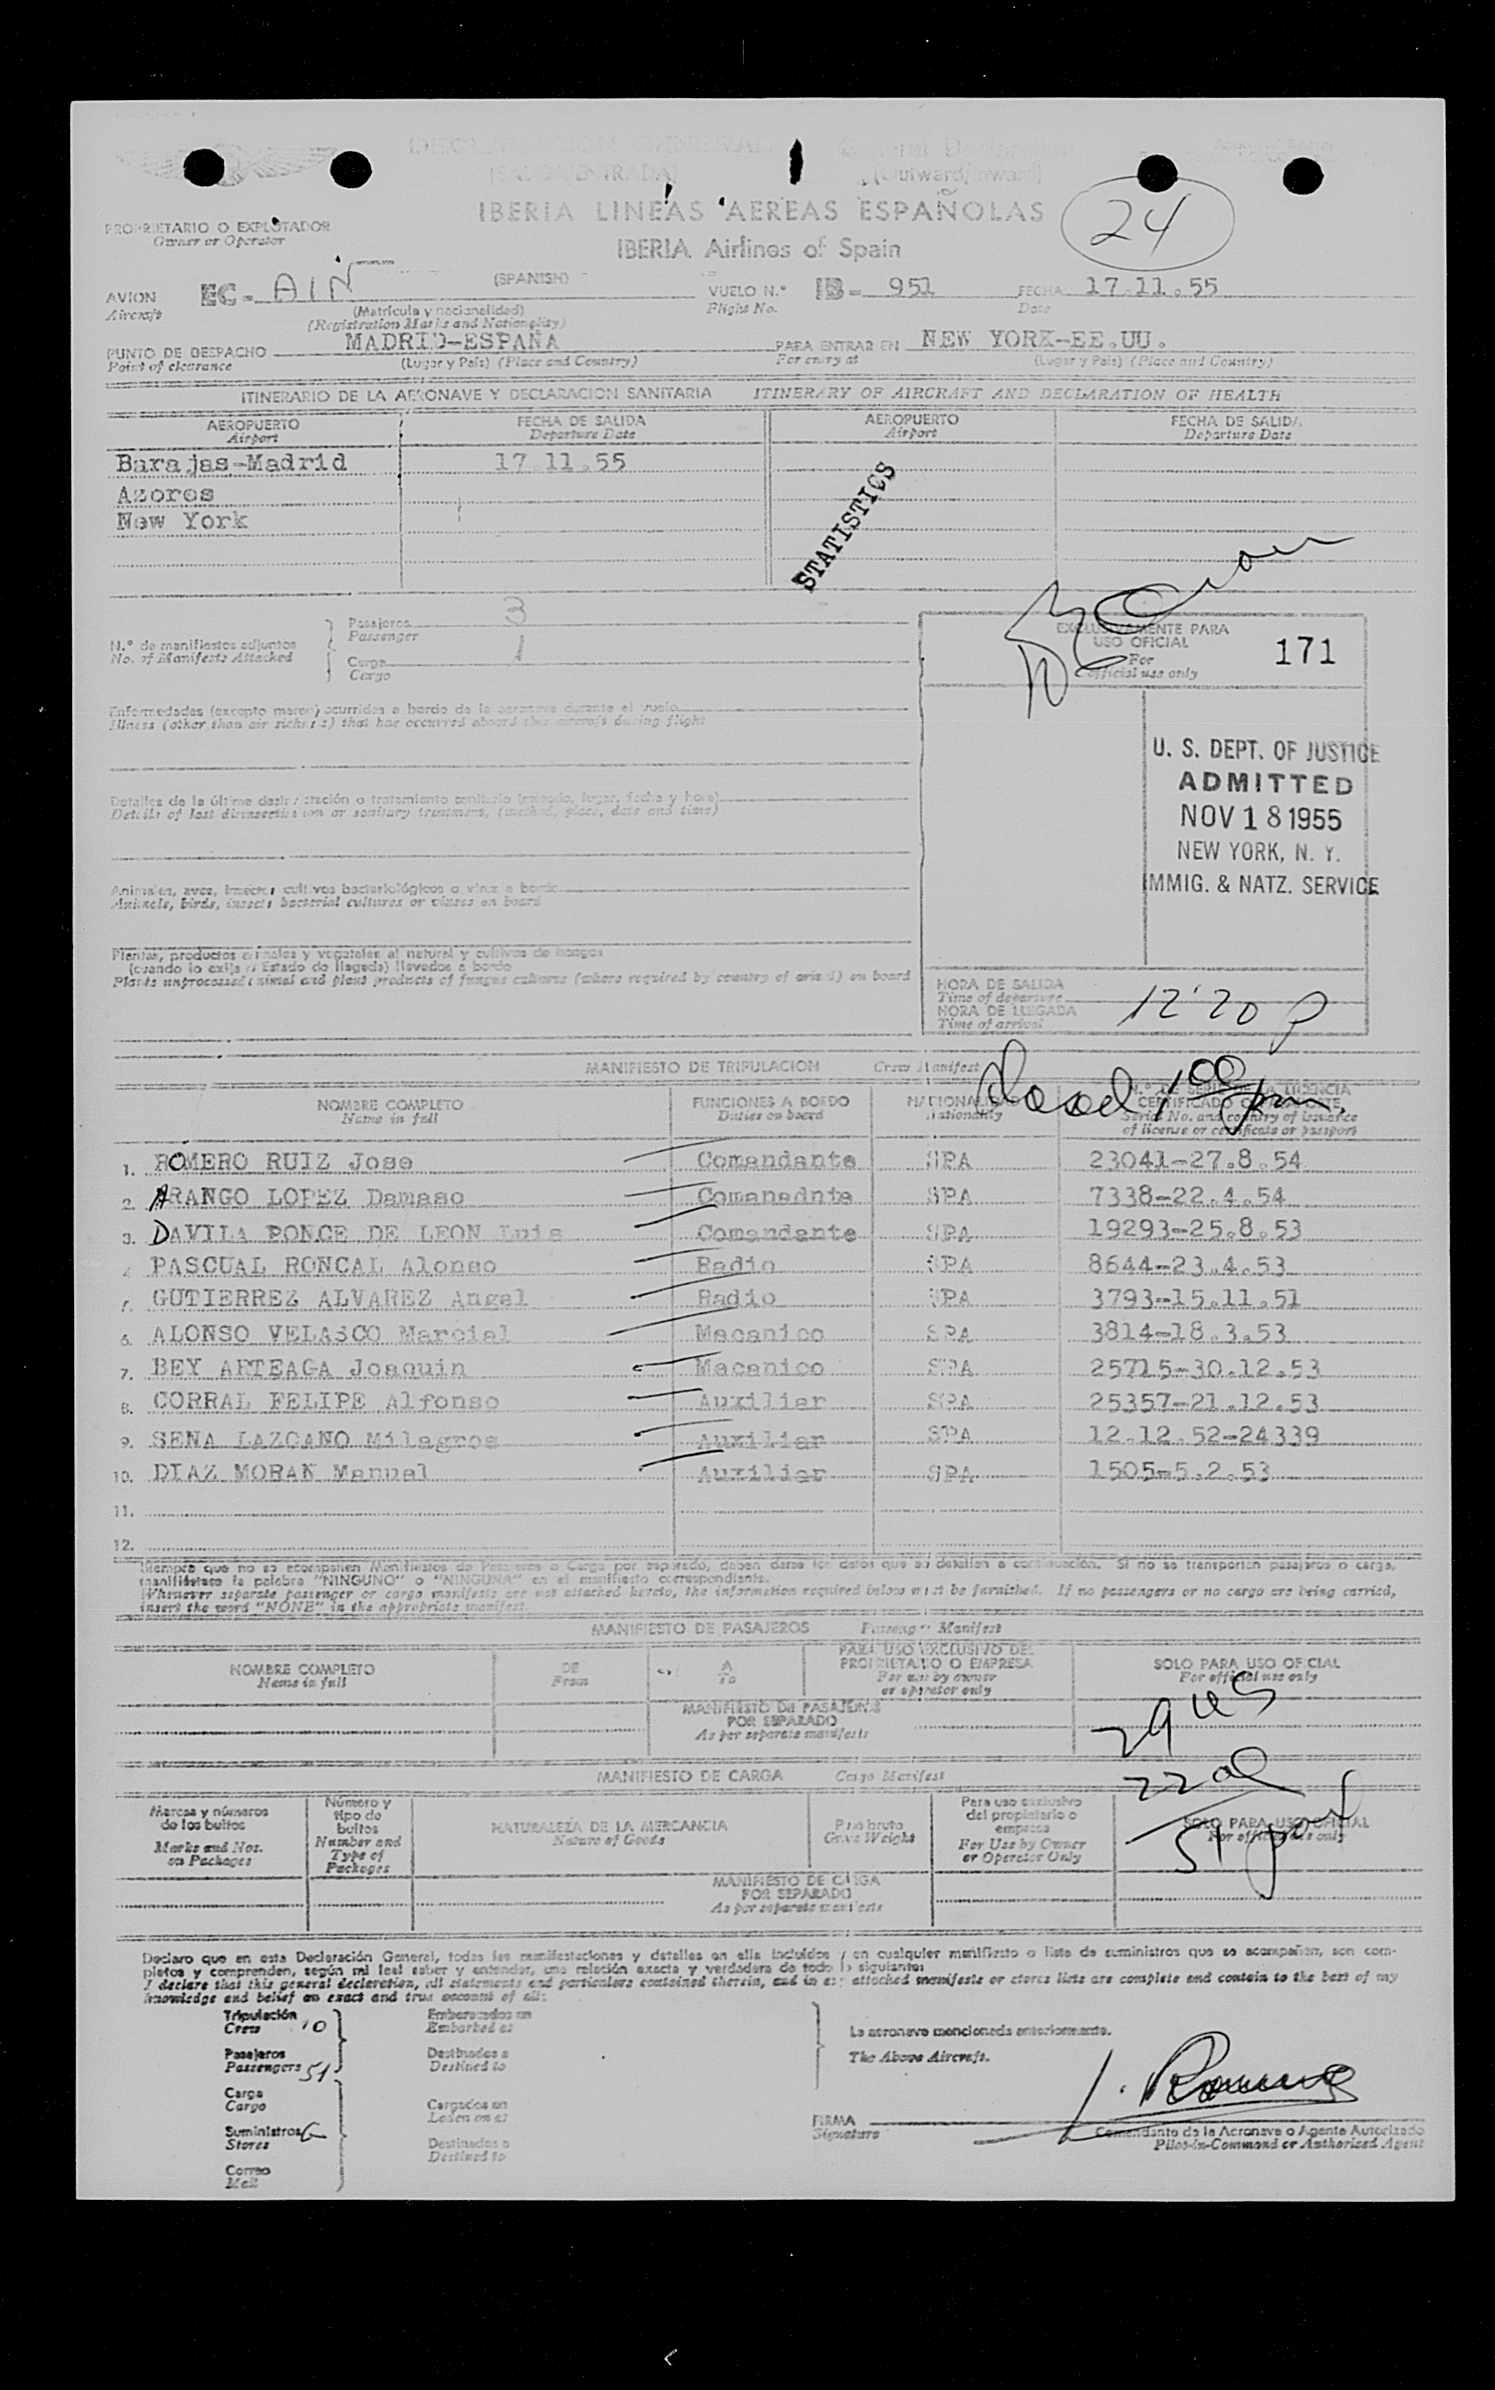 DECLARACION GENERAL General Declaration
(SALIDA/ENTRADA) (Outward/Inward)
IBERIA LINEAS AEREAS ESPAÑOLAS
IBERIA Airlines of Spain
24
PROPRIETARIO O EXPLOTADOR
Owner or Operator
AVION EC- AIN (SPANISH) VUELO N.º IB- 951 FECHA 17.11.55
Aircraft (Matrícula y nacionalidad) Flight No. Date
(Registration Marks and Nationality)
PUNTO DE DESPACHO MADRID-ESPAÑA PARA ENTRAR EN NEW YORK-EE.UU.
Point of clearance (Lugar y País) (Place and Country) For entry at (Lugar y País) (Place and Country)
ITINERARIO DE LA AERONAVE Y DECLARACION SANITARIA ITINERARY OF AIRCRAFT AND DECLARATION OF HEALTH
AEROPUERTO FECHA DE SALIDA AEROPUERTO FECHA DE SALIDA
Airport Departure Date Airport Departure Date
Barajas-Madrid 17.11.55
Azores
New York
STATISTICS
N.º de manifiestos adjuntos
No. of Manifests Attached
Pasajeros 3
Passenger
Carga 1
Cargo
EXCLUSIVAMENTE PARA
USO OFICIAL
For
official use only
171
Enfermedades (excepto mareo) ocurridas a bordo de la aeronave durante el vuelo
Illness (other than air sickness) that has occurred aboard this aircraft during flight
U. S. DEPT. OF JUSTICE
ADMITTED
NOV 18 1955
NEW YORK, N. Y.
IMMIG. & NATZ. SERVICE
Detalles de la última desinsectación o tratamiento sanitario (método, lugar, fecha y hora)
Details of last disinsectisation or sanitary treatment, (method, place, date and time)
Animales, aves, insectos cultivos bacteriológicos o virus a bordo
Animals, birds, insects bacterial cultures or viruses on board
Plantas, productos animales y vegetales al natural y cultivos de hongos
(cuando lo exija el Estado de llegada) llevados a bordo
Plants unprocessed animal and plant products of fungus cultures (where required by country of arival) on board
HORA DE SALIDA
Time of departure
HORA DE LLEGADA
Time of arrival
12:20 P
MANIFIESTO DE TRIPULACION Crew Manifest
100 pm.
NOMBRE COMPLETO FUNCIONES A BORDO NACIONALIDAD N.º DE SERIE DE LA LICENCIA
Name in full Duties on board Nationality CERTIFICADO O PASAPORTE
Serial No. and country of issuance
of license or certificate or passport
1. ROMERO RUIZ Jose Comandante SPA 23041-27.8.54
2. ARANGO LOPEZ Damaso Comanadnte SPA 7338-22.4.54
3. DAVILA PONCE DE LEON Luis Comandante SPA 19293-25.8.53
4. PASCUAL RONCAL Alonso Radio SPA 8644-23.4.53
5. GUTIERREZ ALVAREZ Angel Radio SPA 3793-15.11.51
6. ALONSO VELASCO Marcial Macanico SPA 3814-18.3.53
7. BEY ARTEAGA Joaquin Macanico SPA 25715-30.12.53
8. CORRAL FELIPE Alfonso Auxiliar SPA 25357-21.12.53
9. SENA LAZCANO Milagros Auxiliar SPA 12.12.52-24339
10. DIAZ MORAN Manuel Auxiliar SPA 1505-5.2.53
11.
12.
Siempre que no se acompañen Manifiestos de Pasajeros o Carga por separado, deben darse los datos que se detallan a continuación. Si no se transportan pasajeros o carga,
manifiéstese la palabra "NINGUNO" o "NINGUNA" en el manifiesto correspondiente.
Whenever separate passenger or cargo manifests are not attached hereto, the information required below must be furnished. If no passengers or no cargo are being carried,
insert the word "NONE" in the appropriate manifest.
MANIFIESTO DE PASAJEROS Passenger Manifest
NOMBRE COMPLETO DE A PARA USO EXCLUSIVO DEL SOLO PARA USO OFICIAL
Name in full From to PROPIETARIO O EMPRESA For official use only
For use by owner
or operator only
MANIFIESTO DE PASAJEROS
POR SEPARADO
As per separate manifests
29 US
22 al
51 pax
MANIFIESTO DE CARGA Cargo Manifest
Marcas y números
de los bultos
Marks and Nos.
on Packages
Número y
tipo de
bultos
Number and
Type of
Packages
NATURALEZA DE LA MERCANCIA
Nature of Goods
Peso bruto
Gross Weight
Para uso exclusivo
del propietario o
empresa
For Use by Owner
or Operator Only
SOLO PARA USO OFICIAL
For official use only
MANIFIESTO DE CARGA
POR SEPARADO
As per separate manifests
Declaro que en esta Declaración General, todas las manifestaciones y detalles en ella incluidos y en cualquier manifiesto o lista de suministros que se acompañen, son com-
pletos y comprenden, según mi leal saber y entender, una relación exacta y verdadera de todo lo siguiente:
I declare that this general declaration, all statements and particulars contained therein, and in any attached manifests or stores lists are complete and contain to the best of my
knowledge and belief an exact and true account of all:
Tripulación
Crew 10
Pasajeros
Passengers 51
Carga
Cargo
Suministros
Stores
Correo
Mail
Embarcados en
Embarked at
Destinados a
Destined to
Cargados en
Laden on at
Destinados a
Destined to
La aeronave mencionada anteriormente.
The Above Aircraft.
J. Romero
FIRMA
Signature
Comandante de la Aeronave o Agente Autorizado
Pilot-in-Command or Authorised Agent